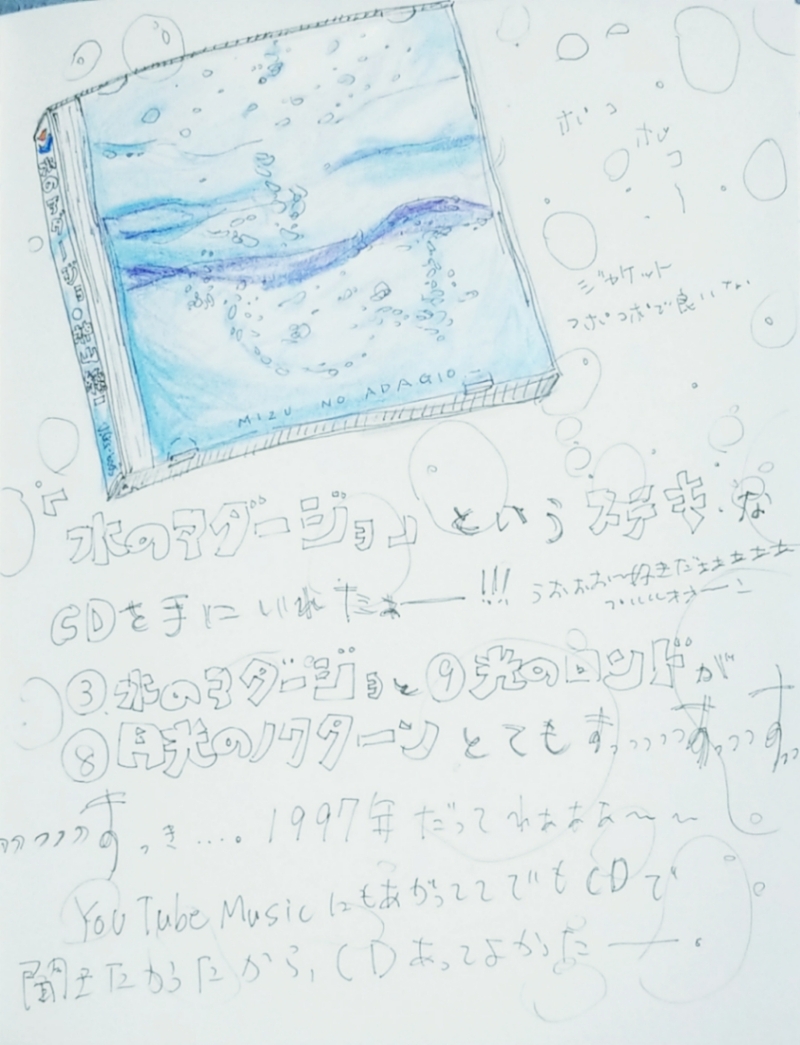 水のアダージョ
ポコ
ポコ
ジャケット
コポコポで良いな
MIZU NO ADAGIO
『水のアダージョ』というステキな
CDを手にいれたぁー!!! うぉぉぉ〜好きだぁぁぁぁぁ
③水のアダージョと⑨光のロンドが
⑧月光のノクターン とてもすっっっっすっっっすっっ
っっっっっすっき…. 1997年だってねぁぁぁ〜〜
YouTube Musicにもあがっててでも CDで
聞きたかたから, CDあってよかったー。